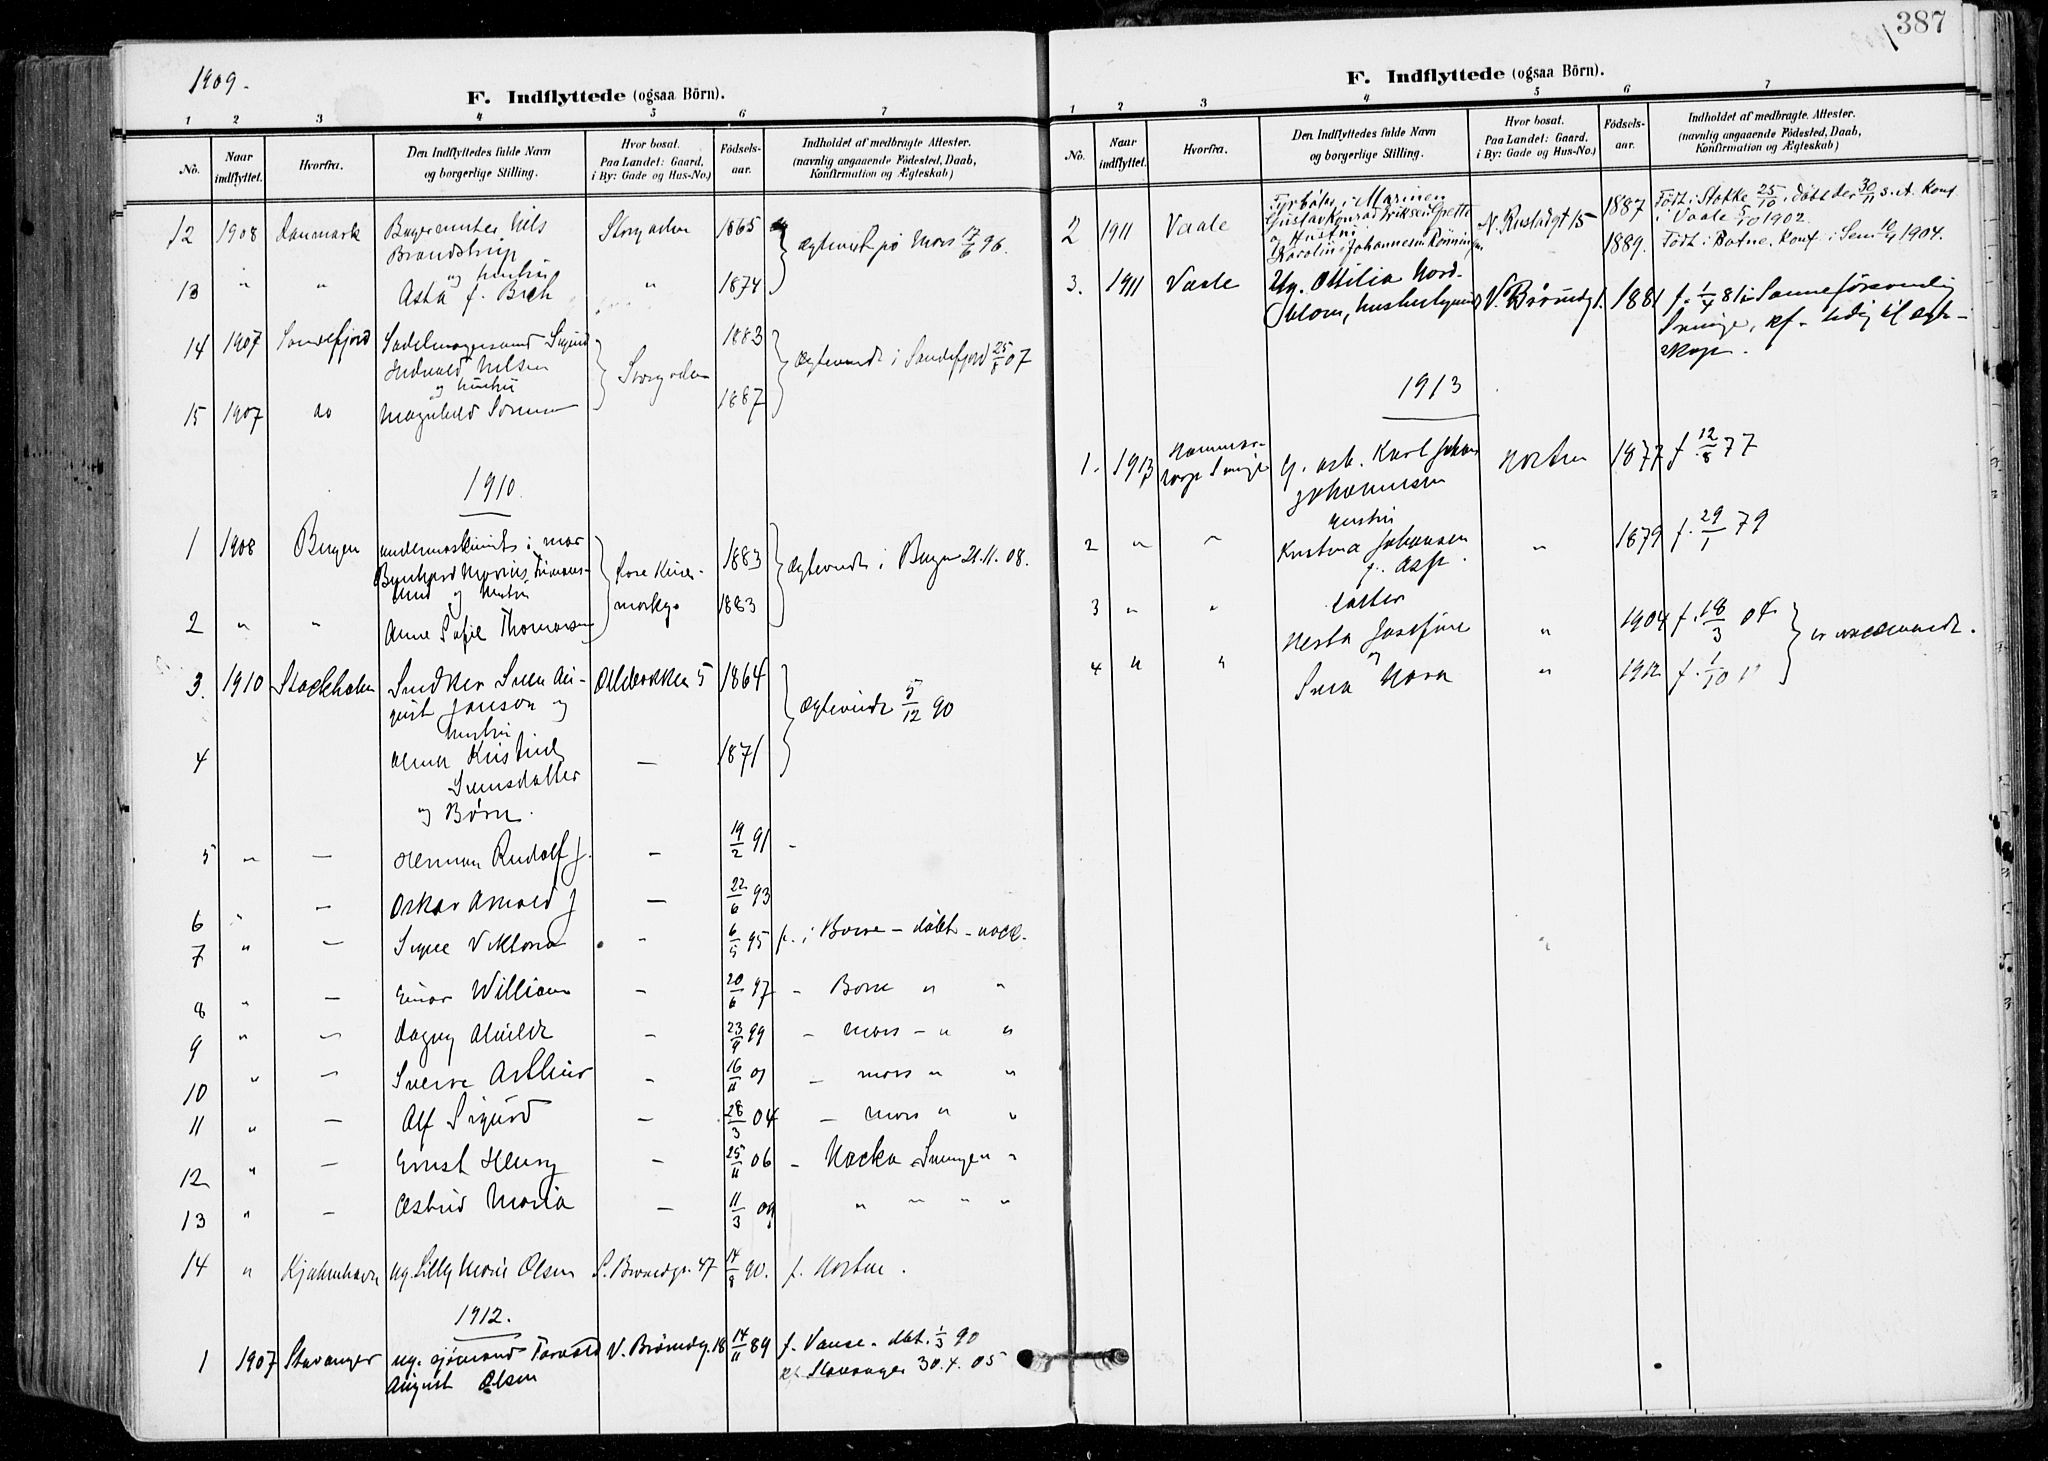 1909.
F. Indflyttede (ogsaa Börn).
1 2 3 4 5 6 7
No. Naar indflyttet. Hvorfra. Den Indflyttedes fulde Navn og borgerlige Stilling. Hvor bosat. Paa Landet: Gaard, i By: Gade og Hus-No.) Födsels-aar. Indholdet af medbragte Attester. (navnlig angaaende Födested, Daab, Konfirmation og Ægteskab)
12 1908 Danmark Nils Storgaden 1865 ægteviet på Mors 96.
Brandstrup
og hustru
13 " " Asta f. Bech " 1874
14 1907 Sandefjord Sadelmagersvend Sigurd 1883
Hedvald Nilsen Storgaden ægteviede i Sandefjord 07
og hustru
15 1907 do Magnhild 1887
1910.
1 1908 Bergen undermaskinist i mar 1883 ægteviede i Bergen 21.11.08.
Bernhard Marius
og Hustru
2 " " Anne Sofie Thomassen 1883
3. 1910 Stockholm Snedker Sven Au- 5 1864 ægteviede 5/12 90
gust Janson og
Hustru
4 Kristine — 1871
Svensdatter
og Børn.
5 " — Herman Rudolf J. — 19/2 91 -
6 " — Oskar Arnold J — 22/6 93
7 " — Signe Viktoria " 6/5 95 f. i Borre - døbt - vacc.
8 " — Einar William — 20/6 97 - Borre " "
9 " — Dagny — 23/9 99 - Mors - " "
10 " — Sverre Arthur - 16/11 01 - Mors " "
11 " — Alf Sigurd — 28/3 04 - Mors " "
12 " — Ernst Henry — 25/11 06 - Nacka Sverigen "
13 " — Astrid Maria — 11/3 09 " " " "
14 " Kjøbenhavn Ug. Lilly Marie Olsen S. Braardgt. 47 14/8 90. f. Horten.
1912.
1 1907 Stavanger ug. sjømand Torvald V. Brårudg. 18 14/11 89 f. Vanse - døbt. 1/3 90
August Olsen kf Stavanger 30.4.05
387
F. Indflyttede (ogsaa Börn).
1 2 3 4 5 6 7
No. Naar indflyttet. Hvorfra. Den Indflyttedes fulde Navn og borgerlige Stilling. Hvor bosat. Paa Landet: Gaard, i By: Gade og Hus-No.) Födsels-aar. Indholdet af medbragte Attester. (navnlig angaaende Födested, Daab, Konfirmation og Ægteskab)
2 1911 Vaale Fyrbøter i Marinen N. Rustadgt 15 1887 Født i Stokke 25/10, døbt der 30/11 s. A. Konf.
Gustav Konrad Eriksen Grette i Vaale 5/10 1902.
og Hustru
Karoline Johannesen Rönningen 1889. Født i Botne. Konf. i Sem 1904.
3. 1911 Vaale Ug. Ottilia Nord- V. Brårudgt. 1881 f. 1/4 81 i Sanne församling
blom, husbestyrerinde Sverige, kf - ledig til ægte-
skap.
1913
1. 1913 Sverige G. arb. Karl Johan Horten 1877 f. 12/8 77
Johannesen
hustru
2 " " Kristina Johansen " 1879 f. 29/1 79
f. Asp.
datter
3 " " Hertha Josefine " 1904 f. 18/3 04
og er vaccinerede.
4 " " Svea Nora " 1912 f. 1/10 11